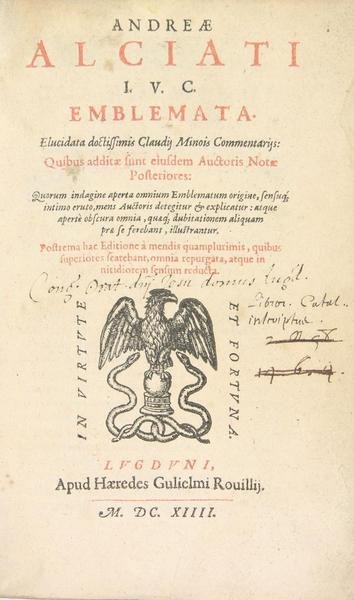 ANDREÆ
ALCIATI
I. V. C.
EMBLEMATA.
Elucidata doctiſſimis Claudij Minois Commentarijs:
Quibus additæ ſunt eiuſdem Auctoris Notæ
Poſteriores:
Quorum indagine aperta omnium Emblematum origine, ſenſuq́;
intimo eruto, mens Auctoris detegitur & explicatur: atque
apertè obſcura omnia, quæq́; dubitationem aliquam
præ ſe ferebant, illuſtrantur.
Poſtrema hac Editione à mendis quamplurimis, quibus
ſuperiores ſcatebant, omnia repurgata, atque in
nitidiorem ſenſum reducta.
Cong. Orat. dnj Jesu domus Lugd.
Libror. Catal.
inscriptus
IN VIRTVTE
ET FORTVNA.
LVGDVNI,
Apud Hæredes Gulielmi Rouillij.
M. DC. XIIII.